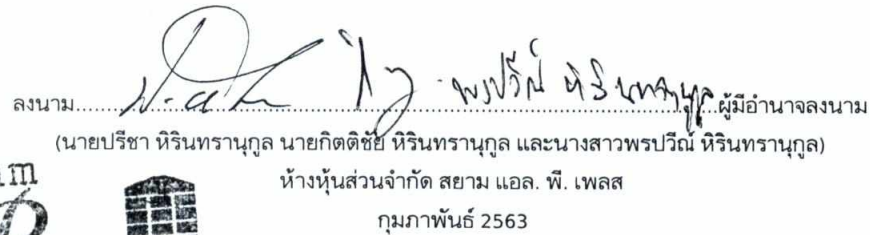 ลงนาม..........พรปวีณ์ หิรินทรานุกูล..........ผู้มีอำนาจลงนาม
(นายปรีชา หิรินทรานุกูล นายกิตติชัย หิรินทรานุกูล และนางสาวพรปวีณ์ หิรินทรานุกูล)
ห้างหุ้นส่วนจำกัด สยาม แอล. พี. เพลส
กุมภาพันธ์ 2563